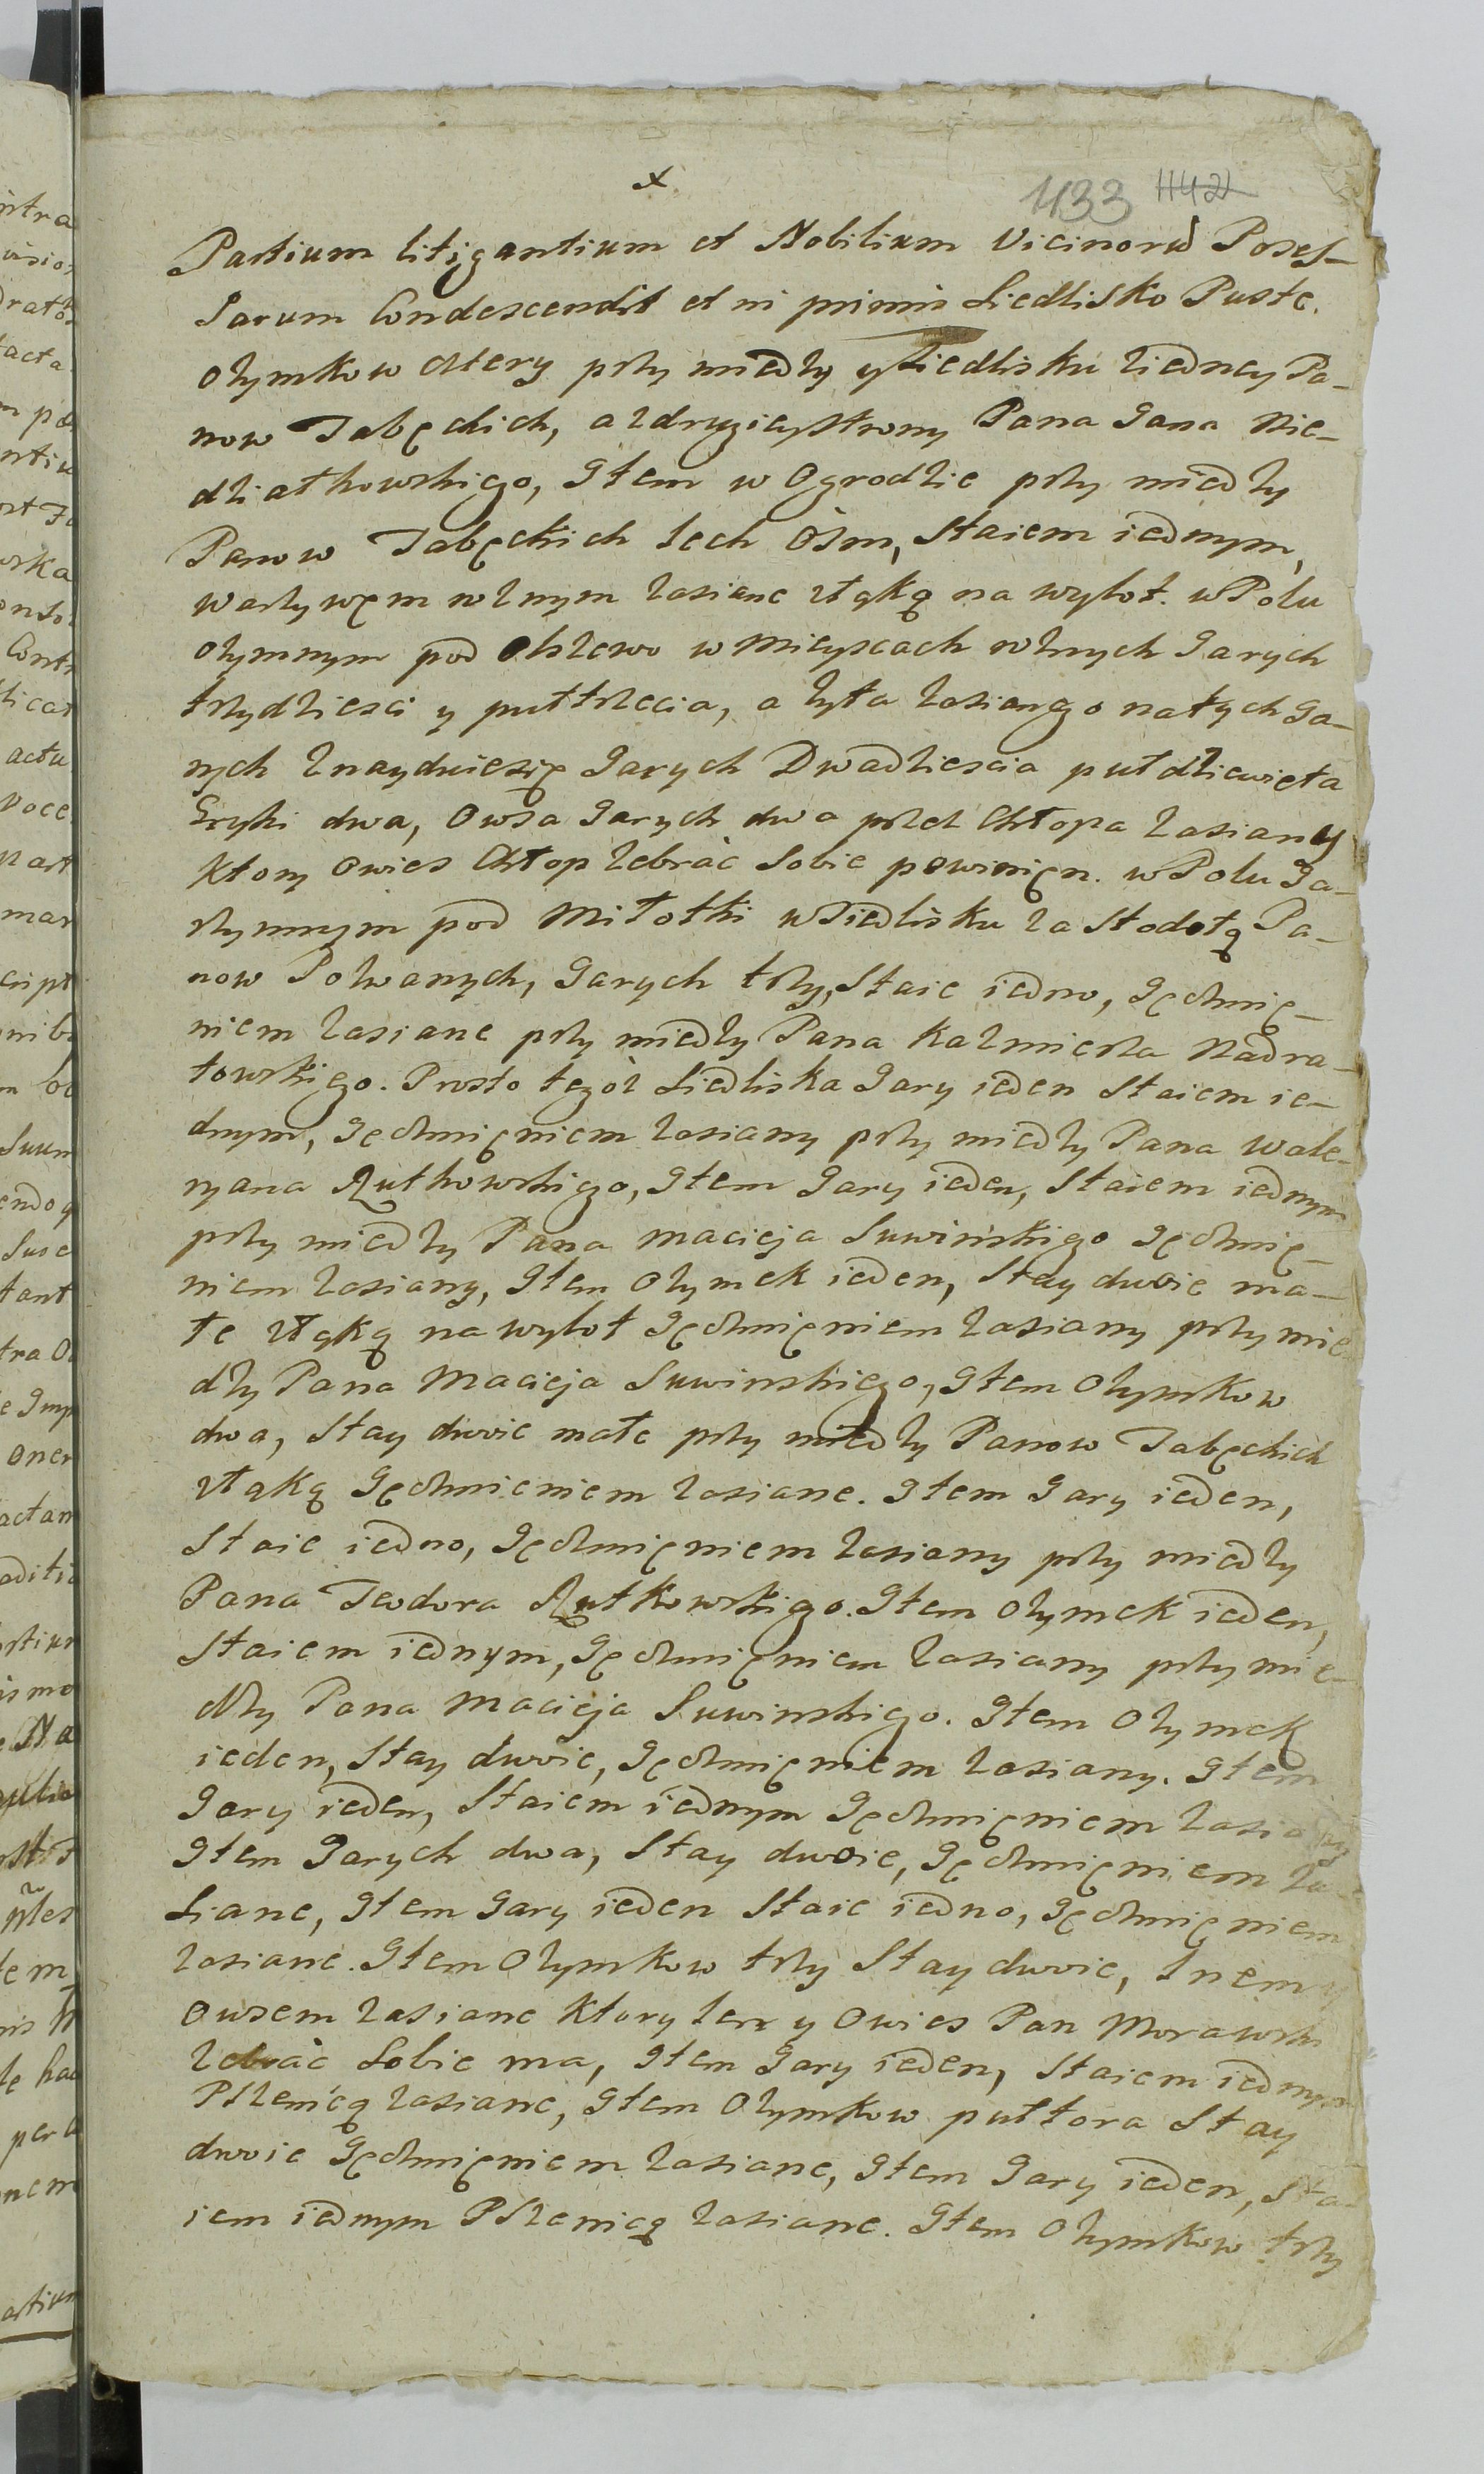 x
433 1142
Partium litigantium et Nobilium Vicinorũ Poses-
sarum Condescendit et in primis Siedlisko Puste.
Ozymkow cztery przy miedzy y Siedlisku ziedney Pa-
now Tabęckich, a zdrugiey strony Pana Jana Nie-
działkowskiego, Item w Ogrodzie przy miedzy
Panow Tabęckich Lech Ośm, staiem iednym,
Warzywęm roznym zasiane złąką na wylot. w Polu
Ozymnym pod Olszewo w mieyscach roznych Jarych
trzydziesci y puttrzecia, a żyta zasianego natych Ja-
rych znayduiesię Jarych Dwadziescia put dziewięta
Gryki dwa, Owsa Jarych dwa przez Chłopa zasiany
Ktory owies Chłop Zebrać sobie powinięn. w Polu Ja-
rzynnym pod Miłotki w Siedlisku za Stodołą Pa-
now Polwanych, Jarych trzy, Staie iedno, Jęczmię-
niem zasiane przy miedzy Pana Kazmierza Nadra-
towskiego. Prosto tegóż Siedliska Jary ieden Staiem ie-
dnym, Jęczmięniem zasiany przy miedzy Pana Wale-
ryana Rutkowskiego, Item Jary ieden, Staiem iednym
przy miedzy Pana Macieja Suwińskiego Jęczmię-
niem zasiany, Item Ozymek ieden, Stay dwoie ma-
łe złąką na wylot Jęczmięniem zasiany przy mie-
dzy Pana Macieja Suwinskiego, Item Ozymkow
dwa, Stay dwoie małe przy miedzy Panow Tabęckich
złąką Jęczmieniem zasiane. Item Jary ieden,
Staie iedno, Jęczmięniem zasiany przy miedzy
Pana Teodora Rutkowskiego. Item Ozymek ieden,
Staiem iednym, Jęczmięniem zasiany przy mie-
dzy Pana Macieja Suwinskiego. Item Ozymek
ieden, Stay dwoie, Jęczmięniem zasiany. Item
Jary ieden, Staiem iednym Jęczmięniem zasiany
Item Jarych dwa, Stay dwoie, Jęczmięniem za-
siane, Item Jary ieden Staie iedno, Jęczmięniem
zasiane. Item Ozymkow trzy Stay dwoie, Lnem y
Owsem zasiane Ktory Len y Owies Pan Morawski
Zebrać Sobie ma, Item Jary ieden, Staiem iednym
Pszenicą zasiane, Item Ozymkow puttora Stay
dwoie Jęczmięniem zasiane, Item Jary ieden, Sta-
iem iednym Pszenicą zasiane. Item Ozymkow trzy